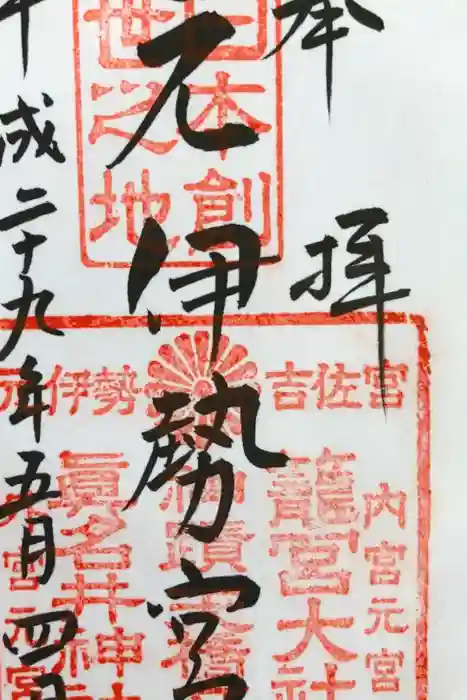 奉拝
日本創
世之地
元伊勢宮
吉佐宮
元伊勢
内宮元宮
籠宮大社
眞名井神社
宮元宮
平成二十九年五月四日